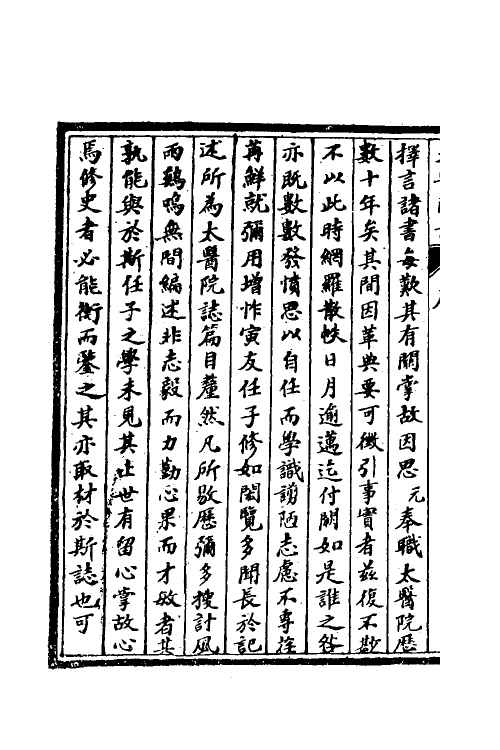 擇言諸書每歎其有關掌故因思元奉職太醫院歷
數十年矣其間因革典要可徵引事實者茲復不尠
不以此時網羅散帙日月逾邁迄付闕如是誰之咎
亦既數數發憤思以自任而學識譾陋志慮不專荏
苒鮮就彌用增怍寅友任子修如閎覽多聞長於記
述所為太醫院誌篇目釐然凡所敭歷彌多搜討風
雨鷄鳴無間編述非志毅而力勤心果而才敏者其
孰能與於斯任子之學未見其止世有留心掌故心
焉修史者必能衡而鑒之其亦取材於斯誌也可